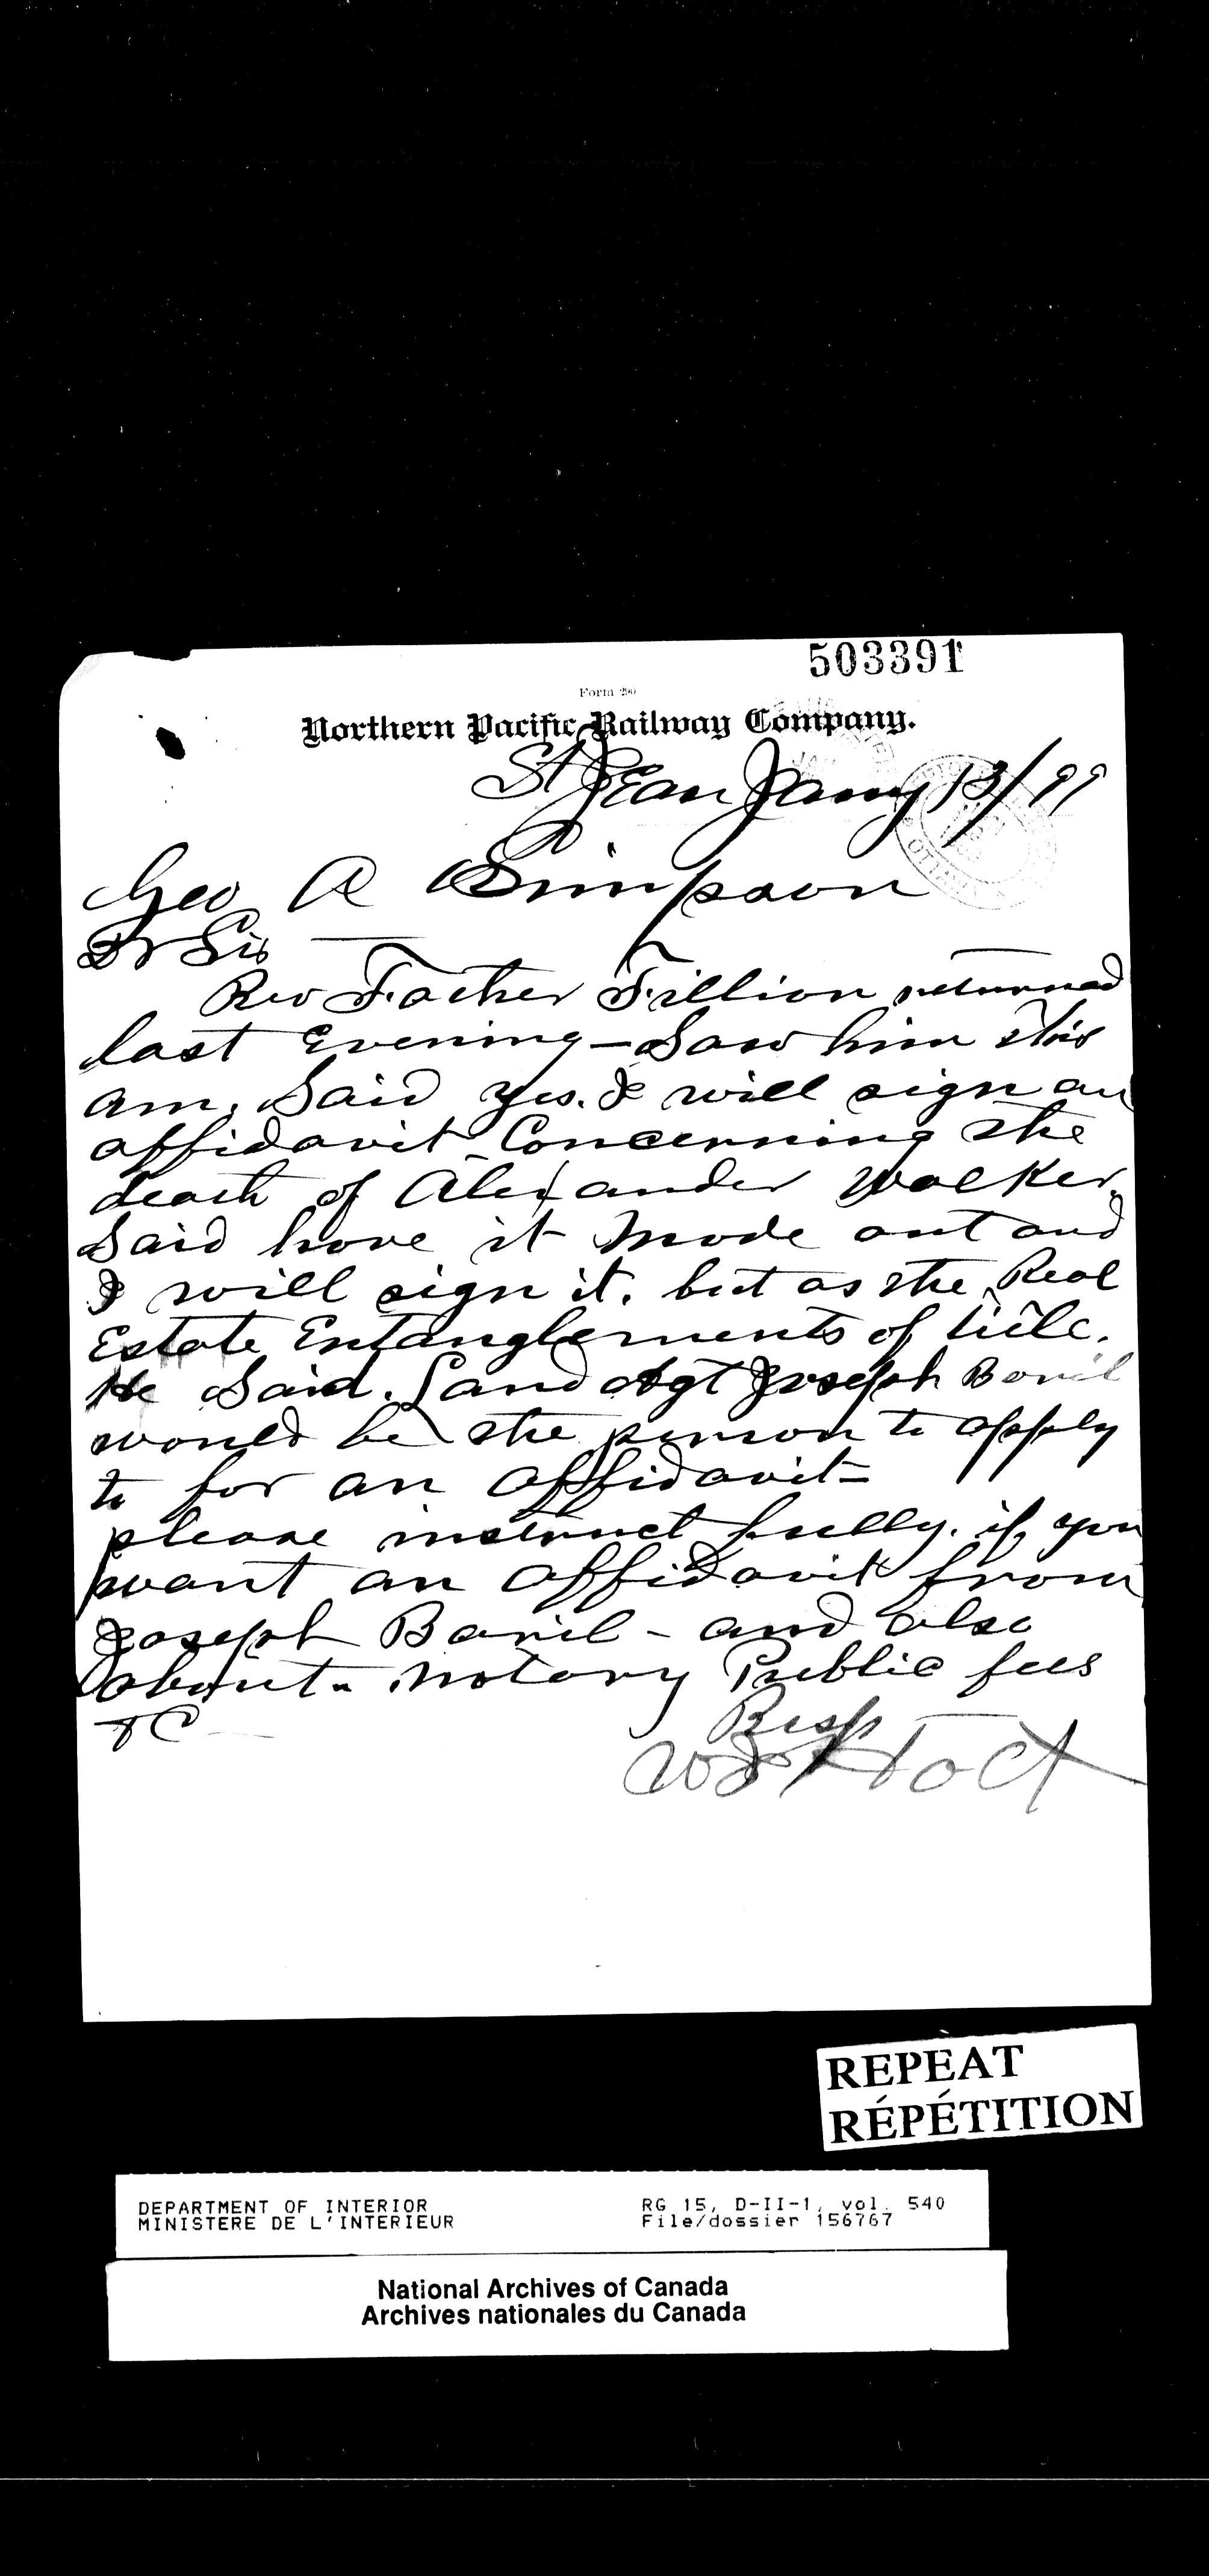 503391
Form 290
Northern Pacific Railway Company.
St Jean Jany 13/99
Geo A Simpson
Dr Sir
Rev Father Fillion returned
last Evening - Saw him this
am, Said yes. I will sign an
affidavit Concerning the
death of Alexander Walker.
Said have it made out and
I will sign it. but as the Real
Estate Entanglements of title.
He Said. Land Agt Joseph Baril
would be the person to apply
to for an affidavit -
please instruct fully. if you
want an affidavit from
Joseph Baril - and also
about - Notary Public fees
&C
Resp
REPEAT
RÉPÉTITION
DEPARTMENT OF INTERIOR RG 15, D-II-1, vol. 540
MINISTERE DE L'INTERIEUR File/dossier 156767
National Archives of Canada
Archives nationales du Canada